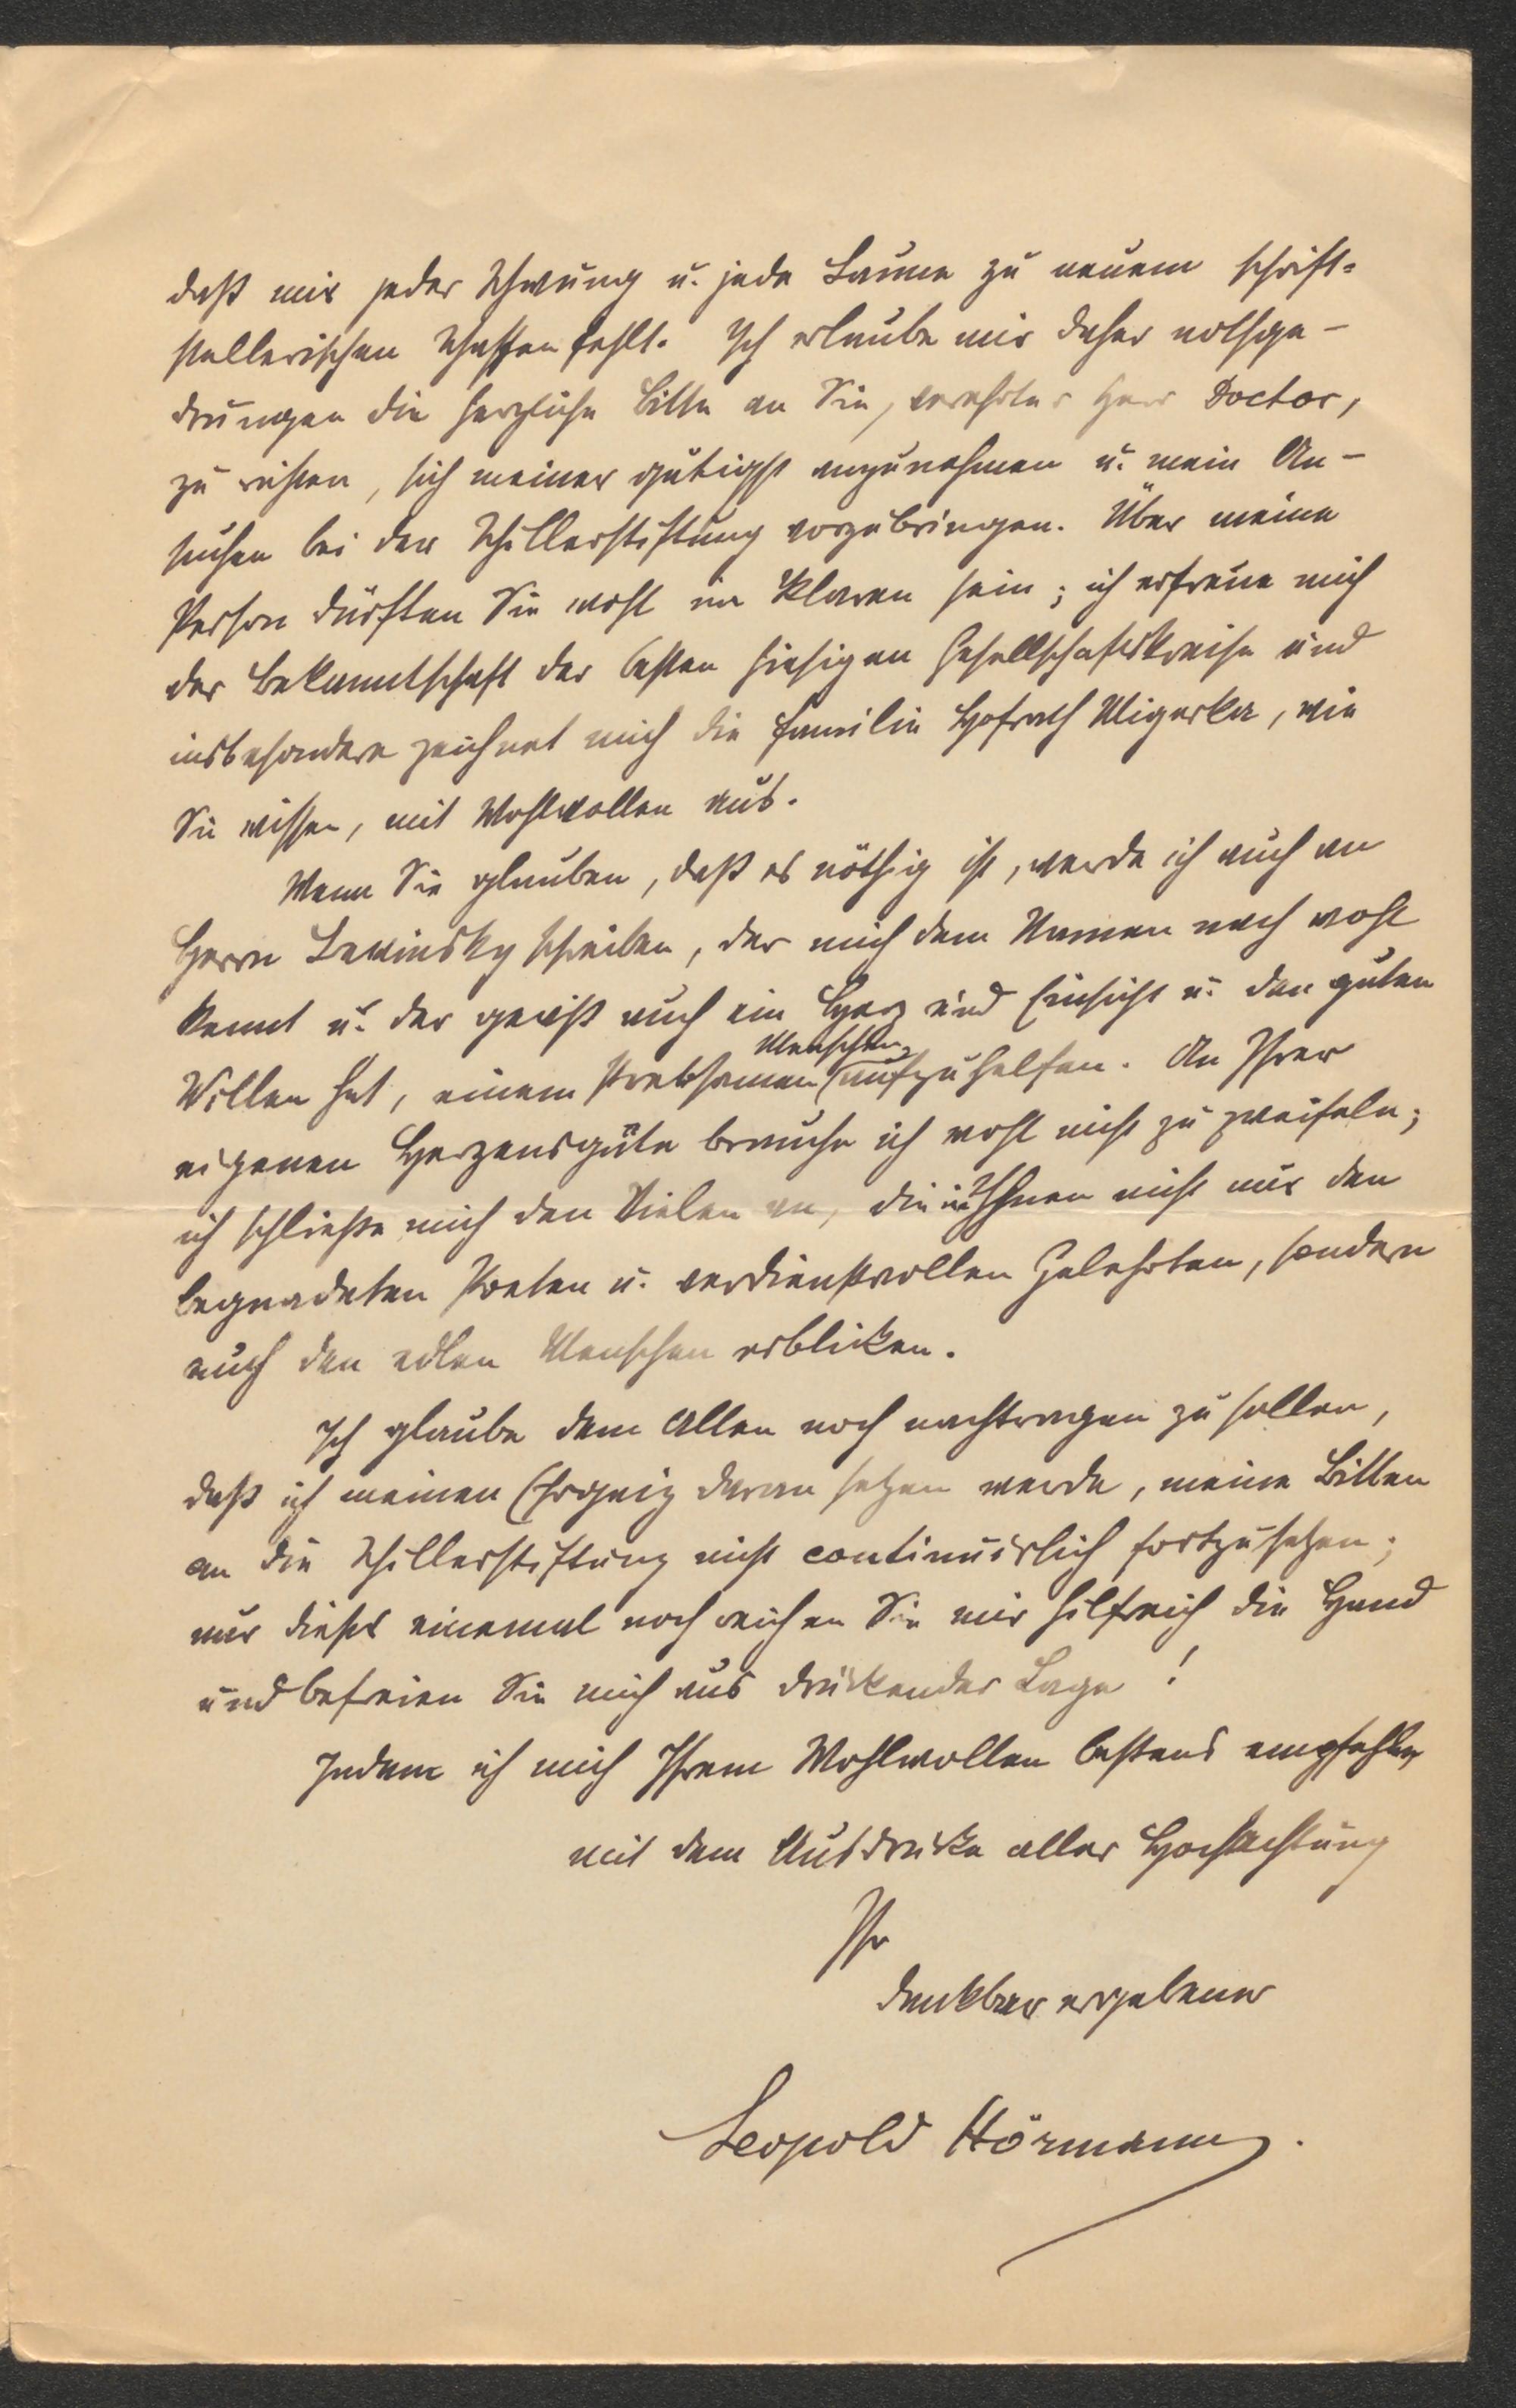 daß mir jeder Schwung u. jede Laune zu neuem schrift-
stellerischen Schaffen fehlt. Ich erlaube mir daher nothge-
drungen die herzliche Bitte an Sie, verehrter Herr Doctor,
zu richten, sich meiner gütigst anzunehmen u. mein An-
suchen bei der Schillerstiftung vorzubringen. Über meine
Person dürften Sie wohl im Klaren sein; ich erfreue mich
der Bekanntschaft der besten hiesigen Gesellschaftskreise und
insbesondere zeichnet mich die Familie Hofrath Migerka, wie
Sie wissen, mit Wohlwollen aus.
Wenn Sie glauben, daß es nöthig ist, werde ich auch an
Herrn Lewinsky schreiben, der mich dem Namen nach wohl
kennt u. der gewiß auch ein Herz und Einsicht u. den guten
Willen hat, einem strebsamen Menschen aufzuhelfen. An Ihrer
eigenen Herzensgüte brauche ich wohl nicht zu zweifeln;
ich schließe mich den Vielen an, die in Ihnen nicht nur den
begnadeten Poeten u. verdienstvollen Gelehrten, sondern
auch den edlen Menschen erblicken.
Ich glaube dem Allen noch nachtragen zu sollen,
daß ich meinen Ehrgeiz daran setzen werde, meine Bitten
an die Schillerstiftung nicht continuirlich fortzusetzen;
nur dieses einemal noch reichen Sie mir hilfreich die Hand
und befreien Sie mich aus drückender Lage!
Indem ich mich Ihrem Wohlwollen bestens empfehle,
mit dem Ausdrucke aller Hochachtung
Ihr
dankbar ergebener
Leopold Hörmann.